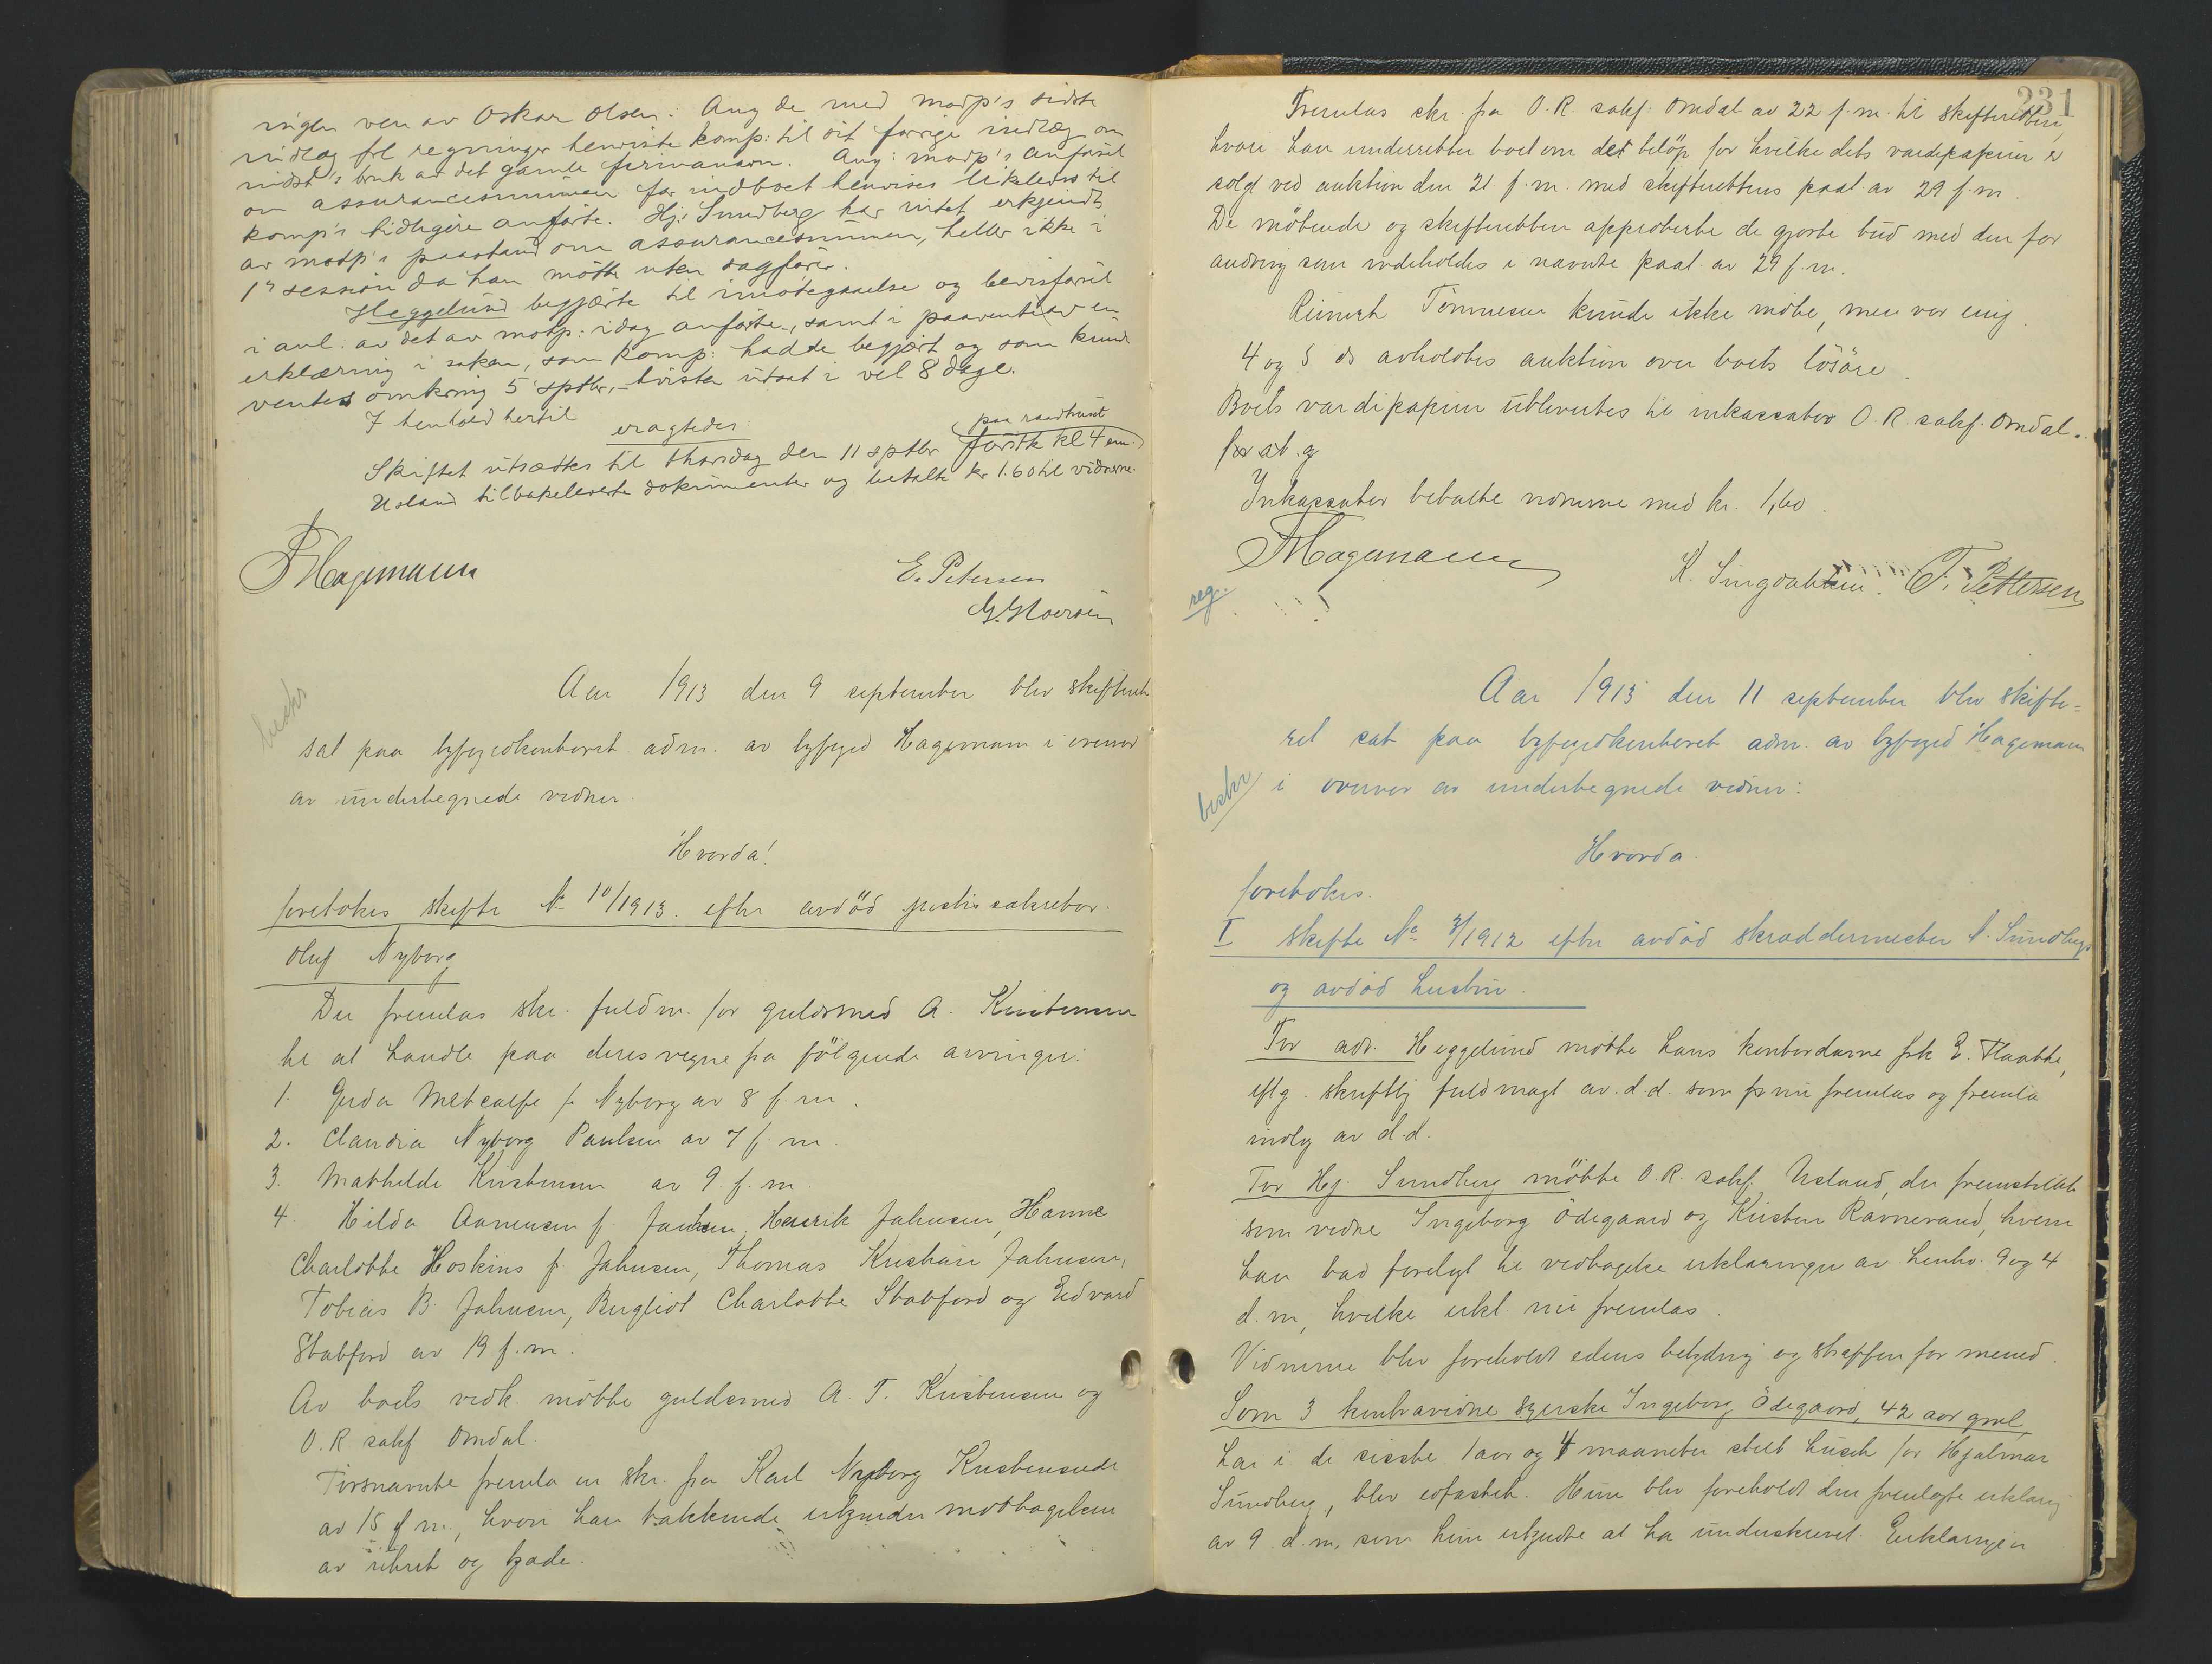 ringen ven av Oskar Olsen: Ang de med modp's sidste
indlæg frl regninger henviste komp: til sit forrige indlæg om
midst's bruk av det gamle firmanavn. Ang: modp's anførsel
om assurancesummen for indboet henvises likeledes til
komp's tidligere anførte. Hj. Sundberg har intet erkjendt
av modp's paastand om assurancesummen, heller ikke i
1ste session da han møtte uten sagfører.
Heggelund begjærte til imøtegaaelse og bevisførsel
i anl. av det av modp: idag anførte, samt i paavente av en
erklæring i saken, som komp: hadde begjært og som kunde
ventes omkring 5 sptbr, tvisten utsat i vel 8 dage.
I henhold hertil
eragtedes:
(paa raadhuset
Skiftet utsættes til thorsdag den 11 sptbr førstk kl 4 em.)
Usland tilbakeleverte dokumenter og betalte kr 1.60 til vidnerne.
Hagemann
E. Petersen
beskr
Aar 1913 den 9 september blev skifteret
sat paa byfogedkontoret adm. av byfoged Hagemann i overvær
av undertegnede vidner.
Hvorda!
foretokes skifte No 10/1913 efter avdød politisekretær
Oluf Nyborg
Der fremlas skr. fuldm. for guldsmed A. Kristensen
til at handle paa deres vegne fra følgende arvinger:
1. Gerda Metcalfe f. Nyborg av 8 f. m.
2. Claudia Nyborg Paulsen av 7 f. m.
3. Mathilde Kristensen av 9. f. m.
4. Hilda Aanensen f. Jahnsen, Henrik Jahnsen, Hanne
Charlotte Hoskins f. Jahnsen, Thomas Kristian Jahnsen,
Tobias B. Jahnsen, Bergliot Charlotte Statford og Edvard
Statford av 19 f. m.
Av boets vedk. møtte guldsmed A. T. Kristensen og
O.R. sakf Omdal.
Førsnævnte fremla en skr. fra Karl Nyborg Kristensen de
av 15 f m., hvori han takkende erkjender mottagelsen
av uhret og kjæde.
231
Fremlas skr. fra O.R. sakf. Omdal av 22 f. m. til skifteretten,
hvori han underretter boet om det beløp for hvilke dets værdipapirer er
solgt ved auktion den 21 f. m. med skifterettens paat. av 29 f. m.
De møtende og skifteretten approberte de gjorte bud med den for
andring som indeholdes i nævnte paat. av 29 f. m.
Rinert Tønnesen kunde ikke møte, men var enig.
4 og 5 ds avholdtes auktion over boets løsøre.
Boets værdipapirer utlevertes til inkassator O.R. sakf. Omdal.
for at. g
Inkassator betalte vidnerne med kr. 1,60.
Hagemann
K. Singdahlsen. T. Pettersen
reg.
Aar 1913 den 11 september blev skifte=
ret sat paa byfogedkontoret adm. av byfoged Hagemann
beskr
i overvær av undertegnede vidner:
Hvorda
foretokes.
I skifte No 3/1912 efter avdød skræddermester A. Sundberg
og avdød hustru.
For adv. Heggelund møtte hans kontordame frk E. Flaatte,
eftg. skriftlig fuldmagt av d. d. som nu fremlas og fremla
indlæg av d.d.
For Hj. Sundberg møtte O.R. sakf. Usland, der fremstillte
som vidne Ingeborg Ødegaard og Kirsten Ravnevand, hvem
han bad forelagt til vedtagelse erklæringer av henhv. 9 og 4
d. m, hvilke erkl. nu fremlas.
Vidnerne blev foreholdt edens betydning og straffen for mened.
Som 3 kontravidne syerske Ingeborg Ødegaard, 42 aar gml,
har i de sidste 1 aar og 4 maaneder stelt huset for Hjalmar
Sundberg, blev edfæstet. Hun blev foreholdt den fremlagte erklæring
av 9 d. m, som hun erkjendte at ha underskrevet. Erklæringen